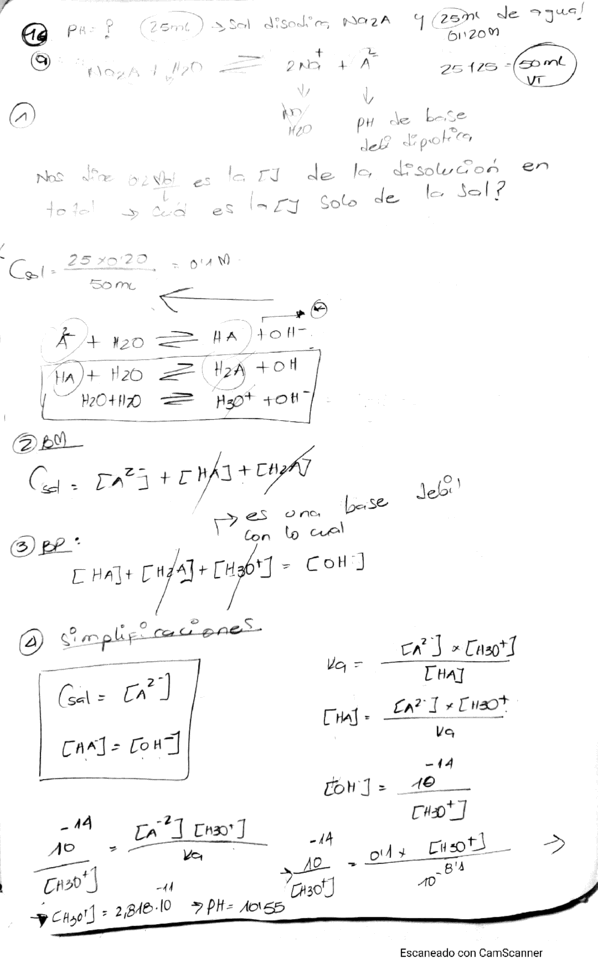 16 PH=? (25ml) → sal disodica Na2A y (25ml de agua!
0'120M
a Na2A + H2O ⇌ 2Na⁺ + A²⁻ 25+25 = 50ml
VT
1 ↓ ↓
H2O PH de base
debil diprotica
Nos dice es la [] de la disolución en
total → cuál es la [] solo de la sal?
Csal = 25x0'20 / 50ml = 0'1M
A²⁻ + H2O ⇌ HA + OH⁻
HA + H2O ⇌ H2A + OH
H2O+H2O ⇌ H3O⁺ + OH⁻
② BM
Csal = [A²⁻] + [HA] + [H2A]
↳ es una base debil
con lo cual
③ BP:
[HA] + [H2A] + [H3O⁺] = [OH⁻]
④ simplificaciones
Csal = [A²⁻]
[HA] = [OH⁻]
Ka = [A²⁻] x [H3O⁺] / [HA]
[HA] = [A²⁻] x [H3O⁺ / Ka
[OH⁻] = 10⁻¹⁴ / [H3O⁺]
10⁻¹⁴ / [H3O⁺] = [A⁻²] [H3O⁺] / Ka → 10⁻¹⁴ / [H3O⁺] = 0'1 x [H3O⁺] / 10⁻⁸'¹ →
→ [H3O⁺] = 2,818·10⁻¹¹ → PH = 10'55
Escaneado con CamScanner